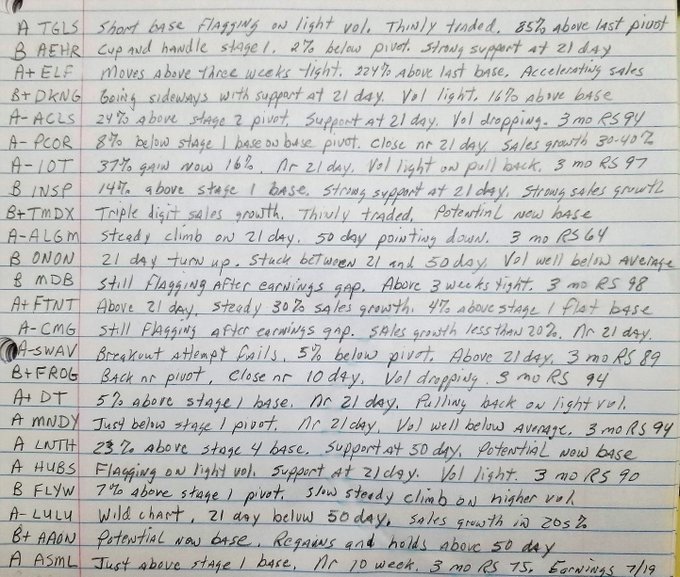 A TGLS Short base flagging on light vol. Thinly traded. 85% above last pivot
B AEHR Cup and handle stage 1. 2% below pivot. Strong support at 21 day
A+ ELF Moves above three weeks tight. 224% above last base. Accelerating sales
B+ DKNG Going sideways with support at 21 day. Vol light. 16% above base
A- ACLS 24% above stage 2 pivot. Support at 21 day. Vol dropping. 3 mo RS 94
A- PCOR 8% below stage 1 base on base pivot. Close nr 21 day. Sales growth 30-40%
A- IOT 37% gain now 16%. Nr 21 day. Vol light on pull back. 3 mo RS 97
B INSP 14% above stage 1 base. Strong support at 21 day. Strong sales growth
B+ TMDX Triple digit sales growth. Thinly traded. Potential now base
A- ALGM Steady climb on 21 day. 50 day pointing down. 3 mo RS 64
B ONON 21 day turn up. Stuck between 21 and 50 day. Vol well below average
B MDB Still flagging after earnings gap. Above 3 weeks tight. 3 mo RS 98
A+ FTNT Above 21 day. Steady 30% sales growth. 4% above stage 1 flat base
A- CMG Still flagging after earnings gap. Sales growth less than 20%. Nr 21 day.
A- SWAV Breakout attempt fails. 5% below pivot. Above 21 day. 3 mo RS 89
B+ FROG Back nr pivot. Close nr 10 day. Vol dropping. 3 mo RS 94
A+ DT 5% above stage 1 base. Nr 21 day. Pulling back on light vol.
A MNDY Just below stage 1 pivot. Nr 21 day. Vol well below average. 3 mo RS 94
A LNTH 23% above stage 4 base. Support at 50 day. Potential now base
A HUBS Flagging on light vol. Support at 21 day. Vol light. 3 mo RS 90
B FLYW 7% above stage 1 pivot. Slow steady climb on higher vol
A- LULU Wild chart. 21 day below 50 day. Sales growth in 20s%
B+ AAON Potential now base. Regains and holds above 50 day
A ASML Just above stage 1 base. Nr 10 week. 3 mo RS 75. Earnings 7/19